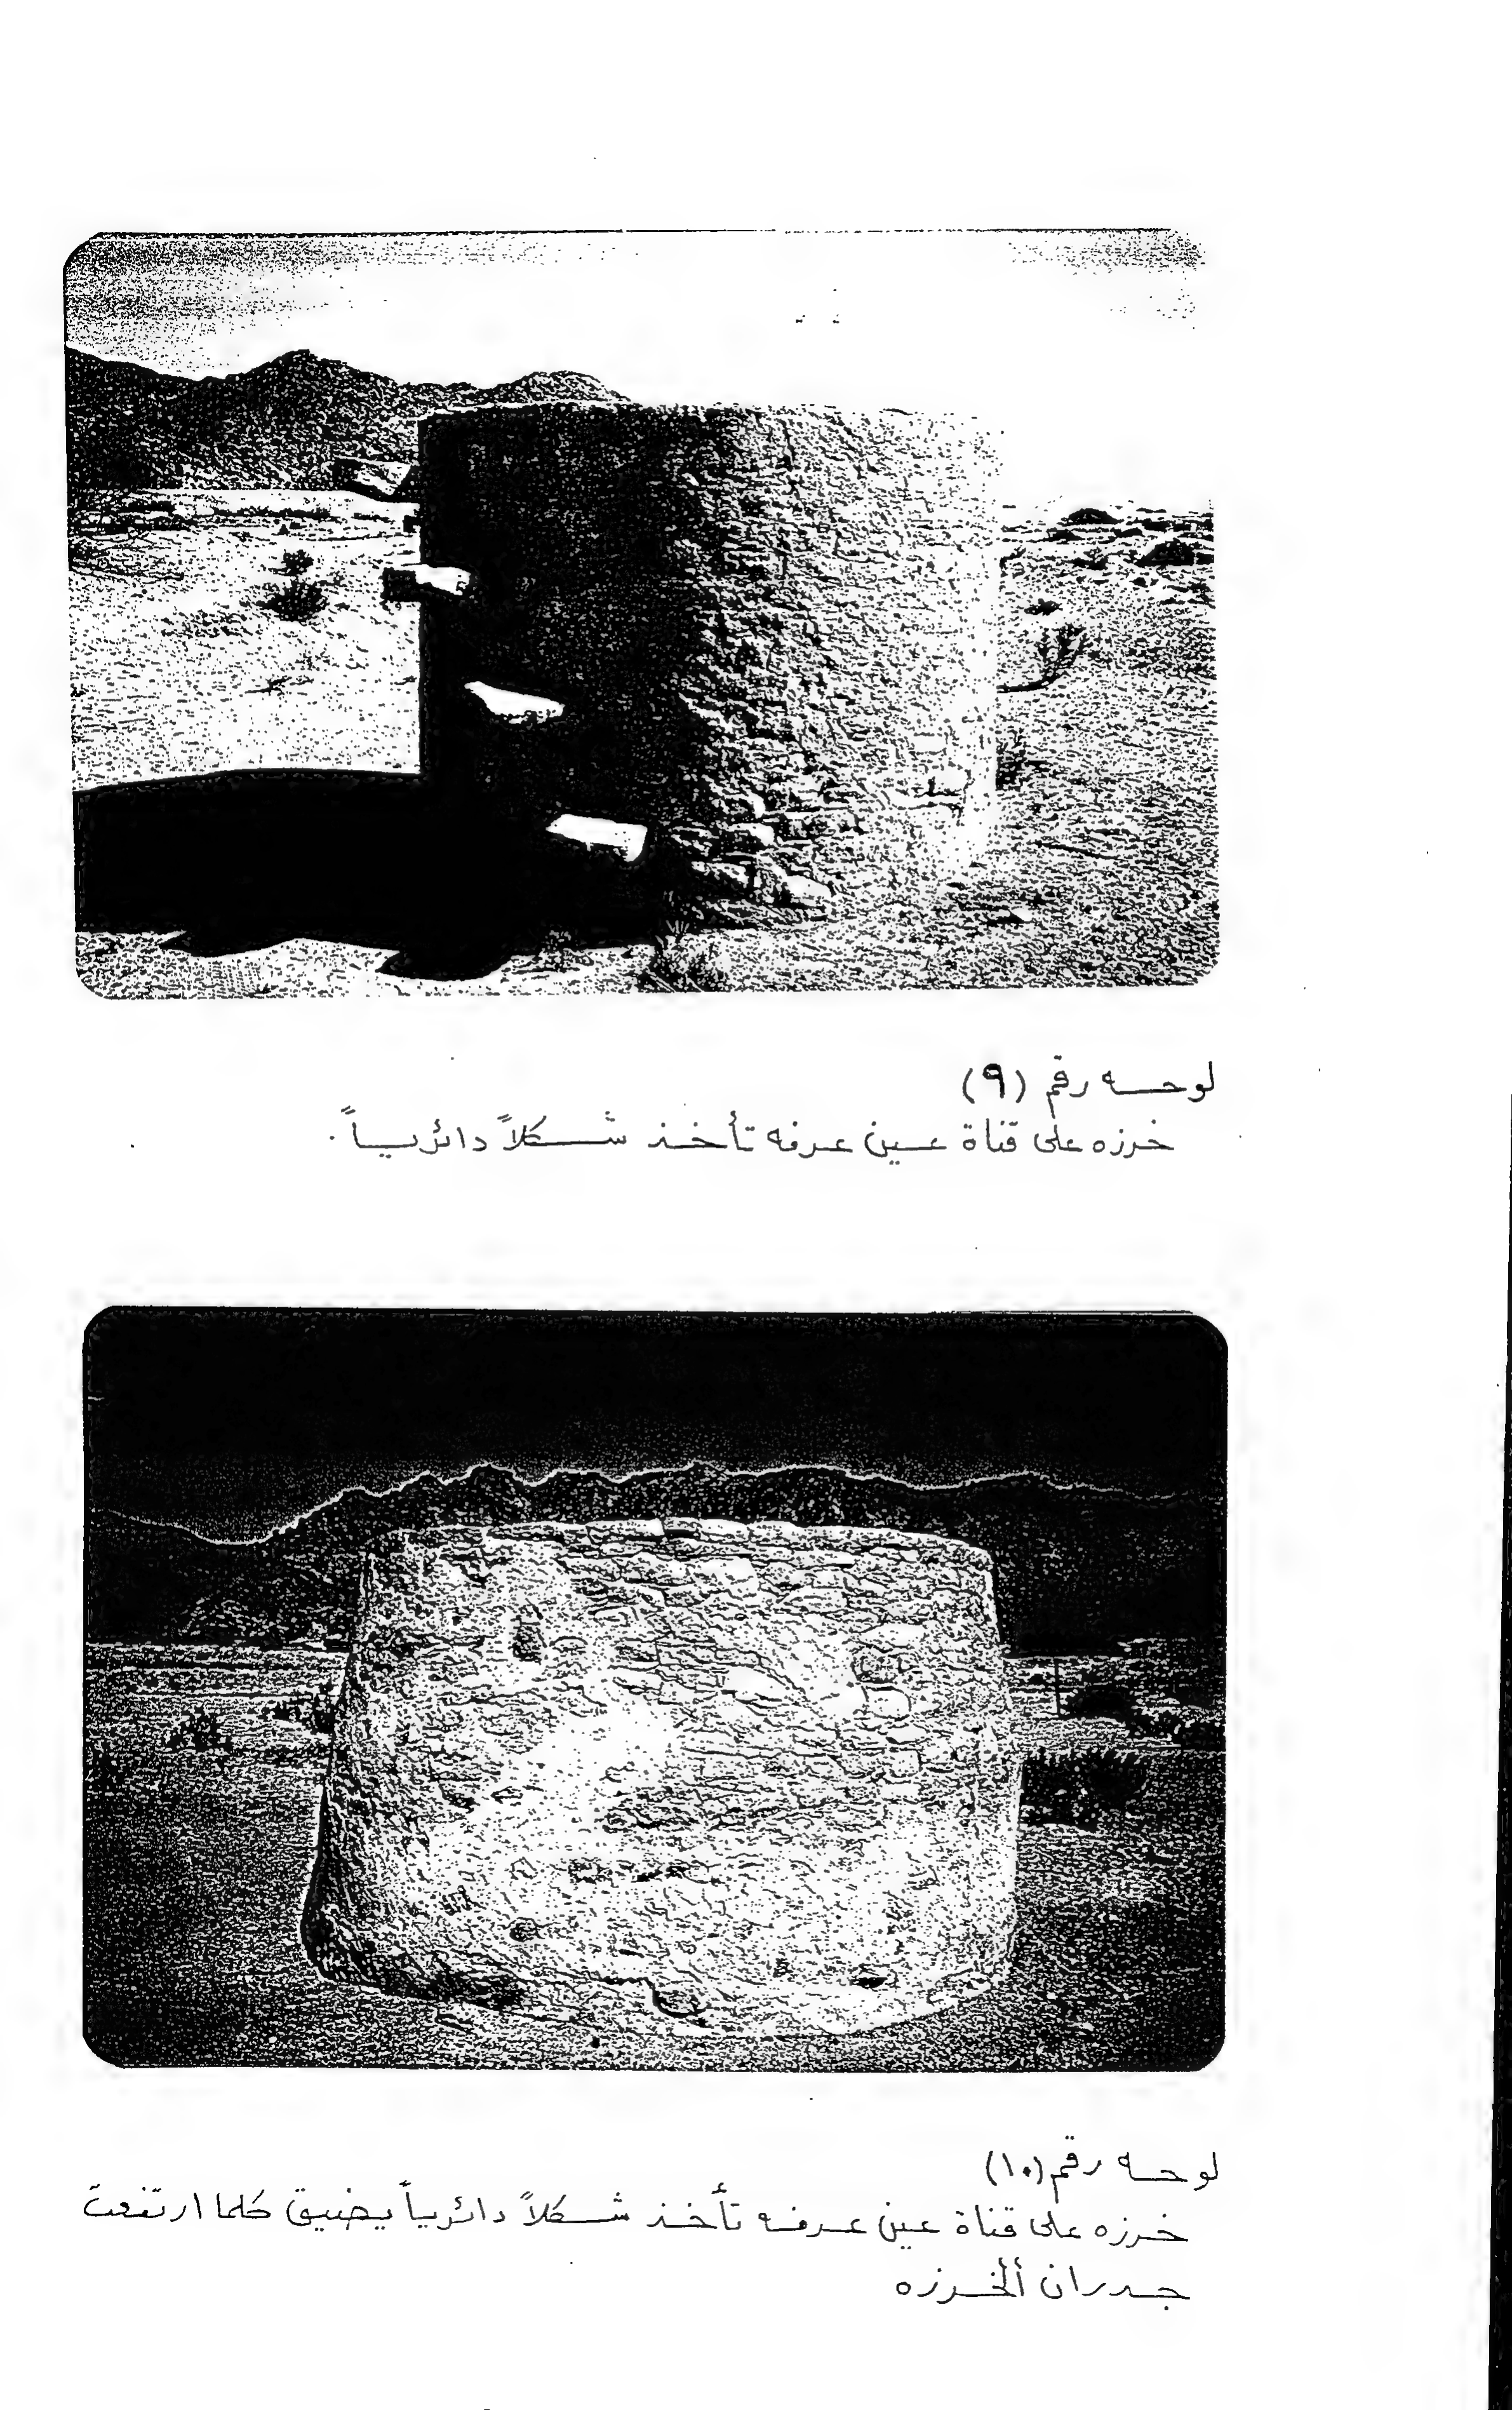 لوحه رقم (٩)
خرزه على قناة عين عرفه تأخذ شكلاً دائرياً .
لوحه رقم (١٠)
خرزه على قناة عين عرفه تأخذ شكلاً دائرياً يضيق كلما ارتفعت
جدران ألخرزه